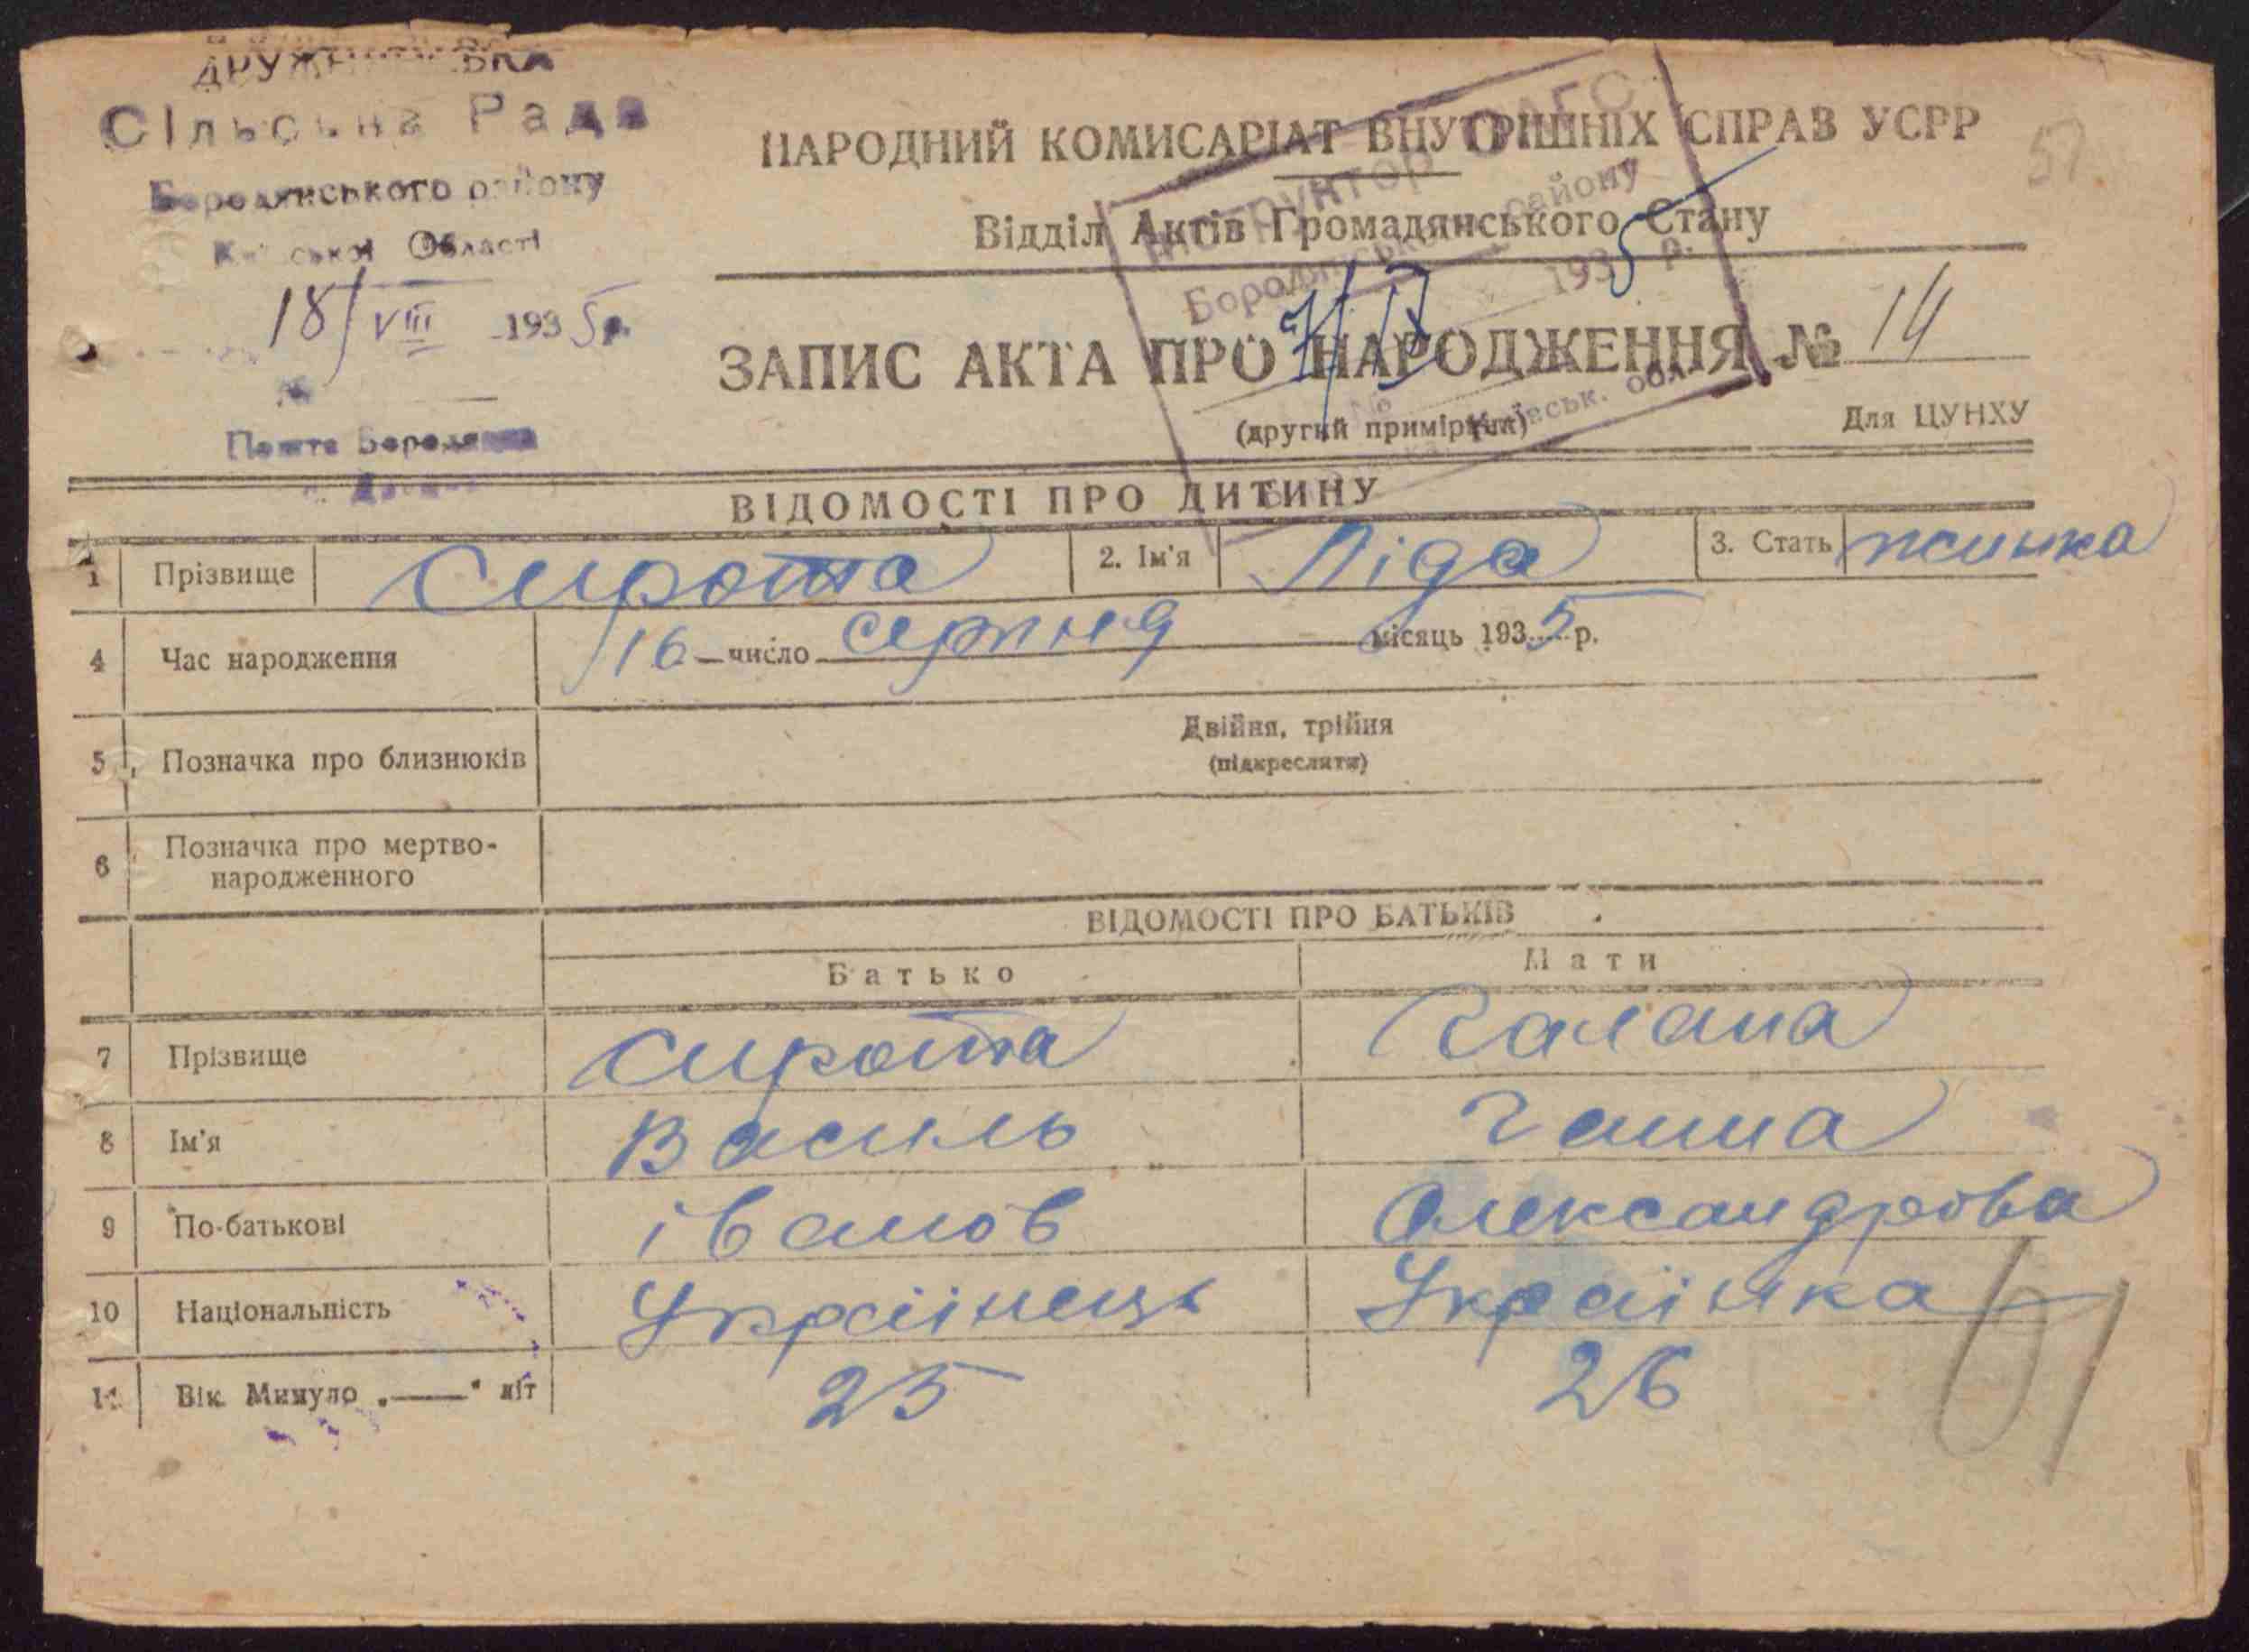 Сільська Рада
Бородянського району
Київської Області
18/VIII 1935 р.
№
Пошта Бородянка
НАРОДНИЙ КОМИСАРІАТ ВНУТРІШНІХ СПРАВ УСРР
57
Відділ Актів Громадянського Стану
Інструктор ЗАГС
Бородянського району
1935 р.
Київськ. обл.
ЗАПИС АКТА ПРО НАРОДЖЕННЯ № 14
(другий примірник)
Для ЦУНХУ
ВІДОМОСТІ ПРО ДИТИНУ
1 Прізвище Сирота 2. Ім'я Ліда 3. Стать жінка
4 Час народження 16 число серпня місяць 1935 р.
5 Позначка про близнюків Двійня, трійня
(підкреслити)
6 Позначка про мертво-
народженного
ВІДОМОСТІ ПРО БАТЬКІВ
Батько Мати
7 Прізвище Сирота
8 Ім'я Василь Ганна
9 По-батькові Іванов Олександрова
10 Національність Українець Українка
11 Вік. Минуло „—“ літ 25 26